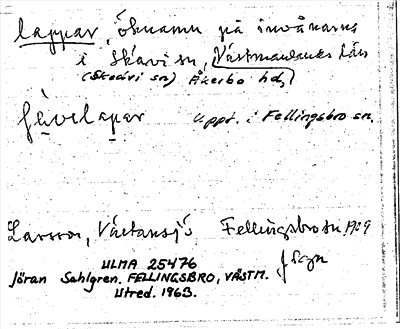 lappar, öknamn på invånarna
i Skävi sn, Västmanlands län
(Skedvi sn) Åkerbo hd
gåvelapar Uppt. i Fellingsbro sn.
Larsson, Västansjö Fellingsbro sn. 1909
J Sgn
ULMA 25476
Jöran Sahlgren. FELLINGSBRO, VÄSTM.
Utred. 1963.